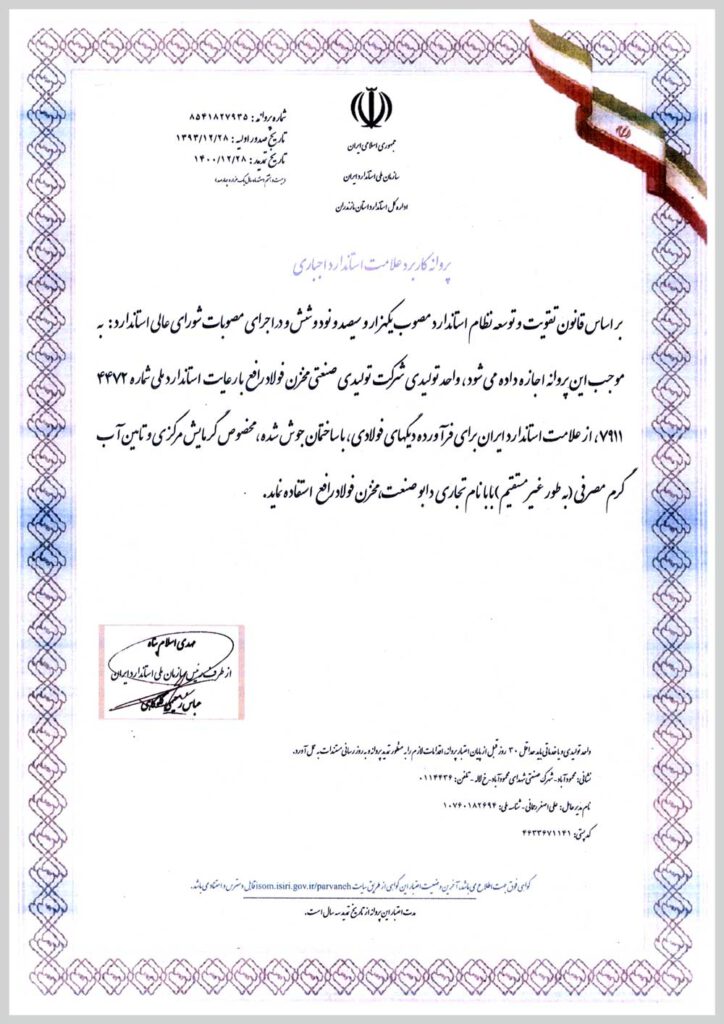 شماره پروانه: ۸۵۴۱۸۲۷۹۳۵
تاریخ صدور اولیه: ۱۳۹۳/۱۲/۲۸
تاریخ تمدید: ۱۴۰۰/۱۲/۲۸
جمهوری اسلامی ایران
سازمان ملی استاندارد ایران
اداره کل استاندارد استان مازندران
پروانه کاربرد علامت استاندارد اجباری
بر اساس قانون تقویت و توسعه نظام استاندارد مصوب یکهزار و سیصد و نود و شش و در اجرای مصوبات شورای عالی استاندارد: به
موجب این پروانه اجازه داده می شود، واحد تولیدی شرکت تولیدی صنعتی مخزن فولاد رافع با رعایت استاندارد ملی شماره ۴۴۷۲
۷۹۱۱، از علامت استاندارد ایران برای فرآورده دیگهای فولادی، با ساختمان جوش شده، مخصوص گرمایش مرکزی و تامین آب
گرم مصرفی (به طور غیر مستقیم) با با نام تجاری دابو صنعت،مخزن فولاد رافع استفاده نماید.
مهدی اسلام پناه
از طرف رئیس سازمان ملی استاندارد ایران
واحد تولیدی و یا خدماتی باید حداقل ۳۰ روز قبل از پایان اعتبار پروانه، اقدامات لازم را به منظور تمدید پروانه و به روز رسانی مستندات به عمل آورد.
نشانی: محمودآباد- شهرک صنعتی شهدای محمودآباد- خ لاله - تلفن: ۰۱۱۴۴۳۶
نام مدیر عامل: علی اصغر رحمانی - شناسه ملی: ۱۰۷۶۰۱۸۲۶۹۴
کد پستی: ۴۶۳۳۶۷۱۱۴۱
گواهی فوق جهت اطلاع می باشد، آخرین وضعیت اعتبار این گواهی از طریق سایت isom.isiri.gov.ir/parvaneh قابل دسترس و استفاده می باشد.
مدت اعتبار این پروانه از تاریخ تمدید سه سال است.